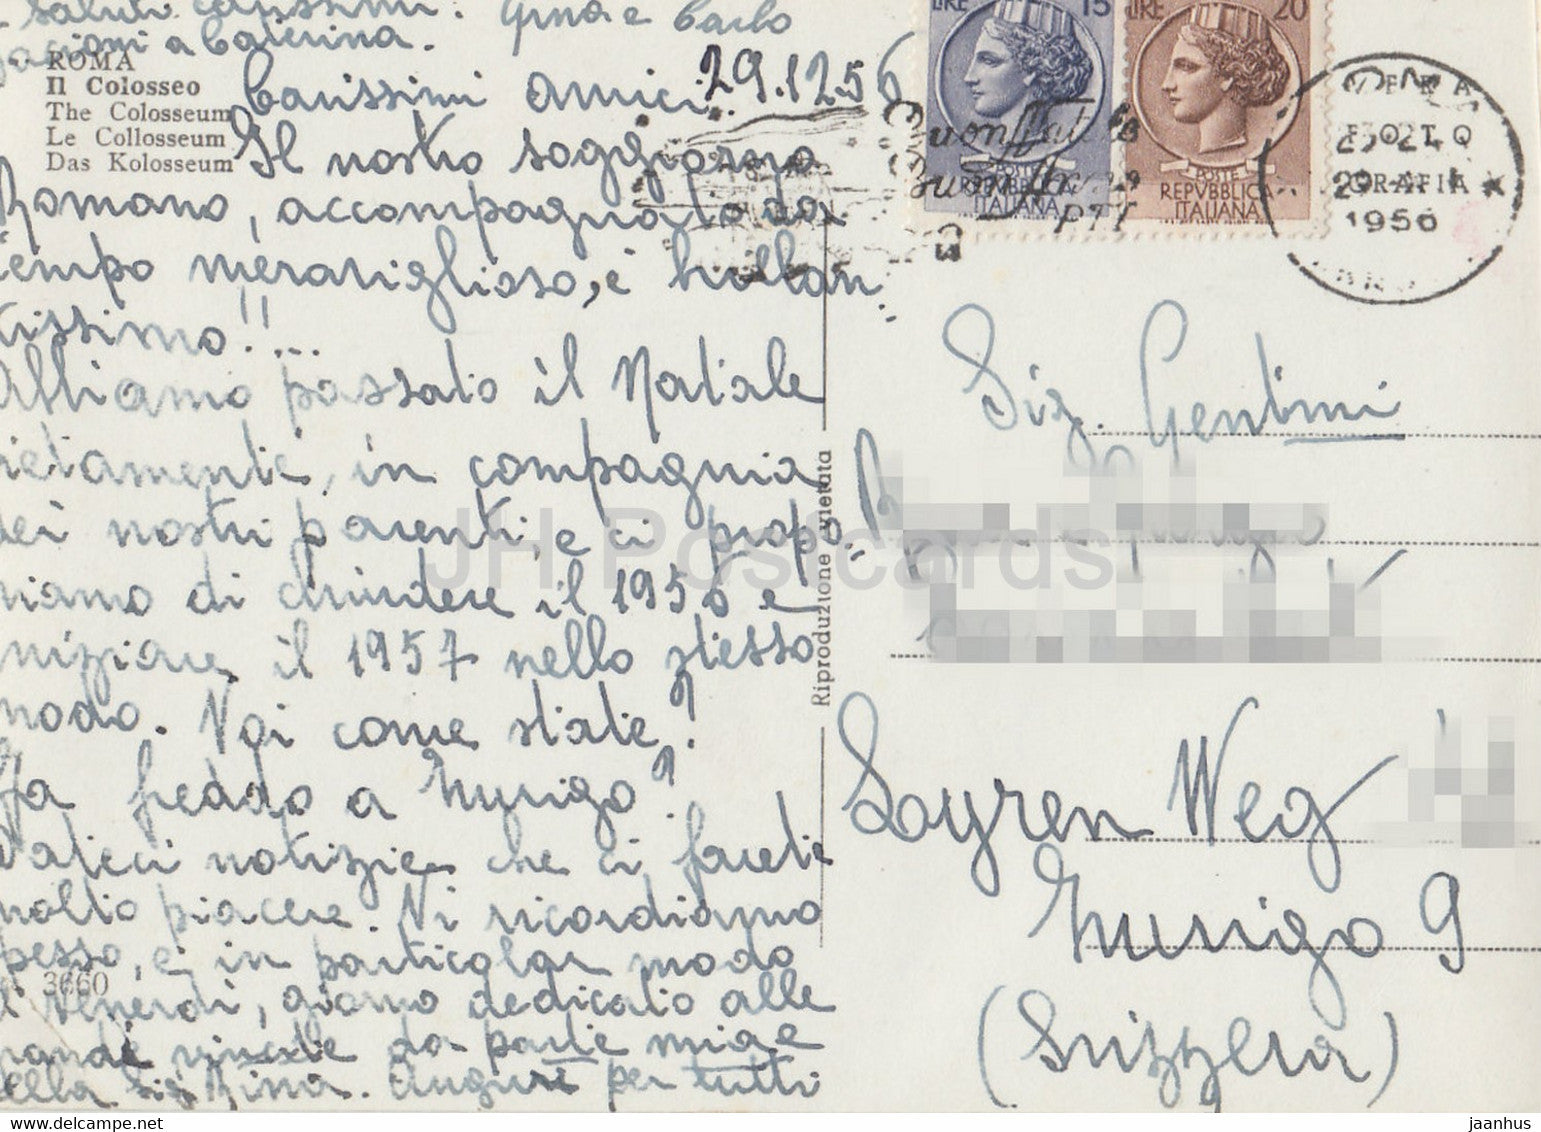 saluti carissimi. Gina e Carlo
a Caterina.
ROMA
Il Colosseo
The Colosseum
Le Collosseum
Das Kolosseum
29.12.56
Carissimi amici,
Il nostro soggiorno
Romano, accompagnato da
tempo meraviglioso, è brillan
tissimo!!...
Abbiamo passato il Natale
lietamente, in compagnia
dei nostri parenti, e ci propo
niamo di chiudere il 1956 e
iniziare il 1957 nello stesso
modo. Voi come state?
Fa freddo a Zurigo?
Dateci notizie che ci farete
molto piacere. Vi ricordiamo
spesso, e, in particolar modo
il Venerdì, giorno dedicato alle
grandi vincite da parte mia e
della sig. Auguri per tutti
3660
Riproduzione vietata
LIRE 15
LIRE 20
POSTE
REPVBBLICA
ITALIANA
POSTE
REPVBBLICA
ITALIANA
FOTO
GRAFIA
23-24
29
1956
Sig. Gentini
Loyren Weg
Zurigo 9
(Svizzera)
JH Postcards
www.delcampe.net
jaanhus